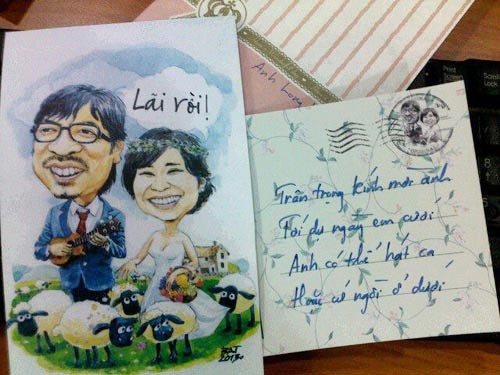 Lãi rồi!
2013
Anh Long
Trân trọng kính mời anh
Tới dự ngày em cưới
Anh có thể hát ca
Hoặc cứ ngồi ở dưới
Print
Scroll
Lock